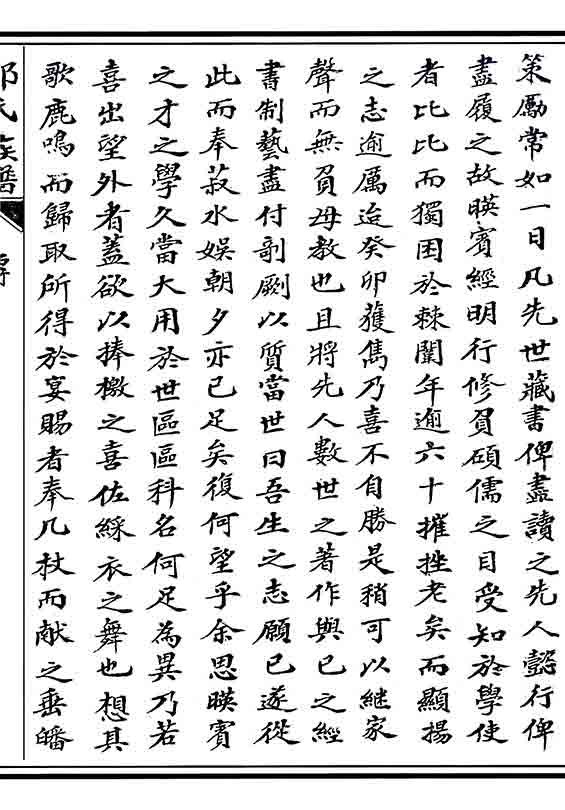 策厲常如一日凡先世藏書俾盡讀之先人懿行俾
盡履之故暎賓經明行修負碩儒之目受知於學使
者比比而獨困於棘闈年逾六十摧挫老矣而顯揚
之志逾厲迨癸卯獲雋乃喜不自勝是稍可以繼家
聲而無負母教也且將先人數世之著作與已之經
書制藝盡付剞劂以質當世曰吾生之志願已遂從
此而奉菽水娛朝夕亦已足矣復何望乎余思暎賓
之才之學久當大用於世區區科名何足為異乃若
喜出望外者蓋欲以捧檄之喜佐綵衣之舞也想其
歌鹿鳴而歸取所得於宴賜者奉几杖而献之垂皤
氏族譜